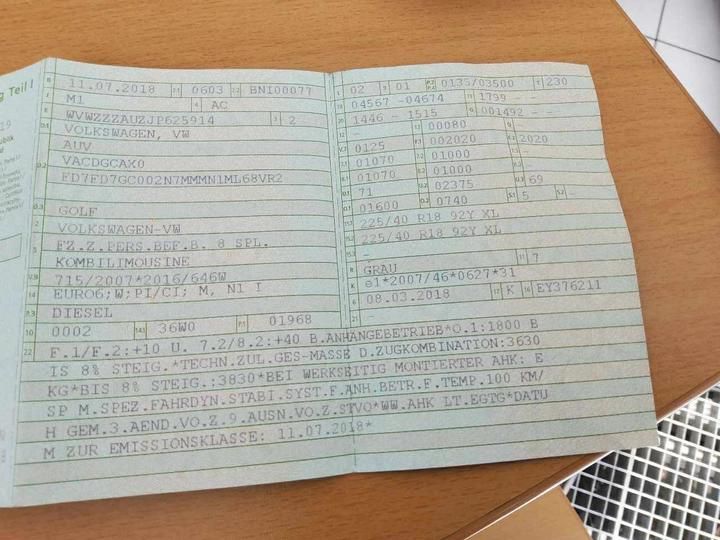 g Teil I
B 11.07.2018 2.1 0603 2.2 BNI00077
J M1 4 AC
E WVWZZZAUZJP625914 3 2
D.1 VOLKSWAGEN, VW
AUV
D.2 VACDGCAX0
FD7FD7GC002N7MMMN1ML68VR2
D.3 GOLF
2 VOLKSWAGEN-VW
5 FZ.Z.PERS.BEF.B. 8 SPL.
KOMBILIMOUSINE
V.9 715/2007*2016/646W
14 EURO6;W;PI/CI; M, N1 I
P.3 DIESEL
10 0002 14.1 36W0 P.1 01968
L 02 9 01 P.2 P.4 0135/03500 T 230
18 04567 -04674 19 1799 --
20 1446 - 1515 G 001492 --
12 - 13 00080 Q -
V.7 0125 F.1 002020 F.2 2020
7.1 01070 7.2 01000 7.3 -
8.1 01070 8.2 01000 8.3 -
U.1 71 U.2 02375 U.3 69
O.1 01600 O.2 0740 S.1 5 S.2 -
15.1 225/40 R18 92Y XL
15.2 225/40 R18 92Y XL
15.3 -
R GRAU 11 7
K e1*2007/46*0627*31
6 08.03.2018 17 K 16 EY376211
21 -
22 F.1/F.2:+10 U. 7.2/8.2:+40 B.ANHANGEBETRIEB*O.1:1800 B
IS 8% STEIG.*TECHN.ZUL.GES-MASSE D.ZUGKOMBINATION:3630
KG*BIS 8% STEIG.:3830*BEI WERKSEITIG MONTIERTER AHK: E
SP M.SPEZ.FAHRDYN.STABI.SYST.F.ANH.BETR.F.TEMP.100 KM/
H GEM.3.AEND.VO.Z.9.AUSN.VO.Z.STVO*WW.AHK LT.EGTG*DATU
M ZUR EMISSIONSKLASSE: 11.07.2018*